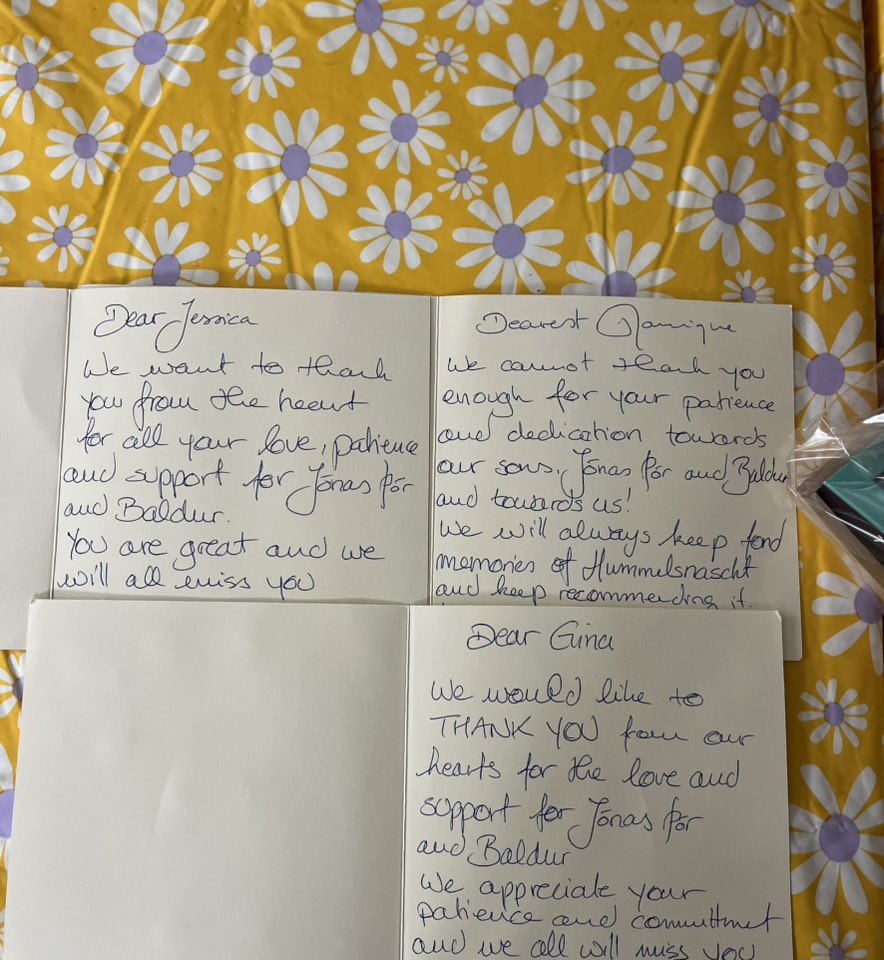 Dear Jessica
We want to thank
you from the heart
for all your love, patience
and support for Jónas Þór
and Baldur.
You are great and we
will all miss you
Dearest Monique
We cannot thank you
enough for your patience
and dedication towards
our sons, Jónas Þór and Baldur
and towards us!
We will always keep fond
memories of Hummelsnascht
and keep recommending it.
Dear Gina
We would like to
THANK YOU from our
hearts for the love and
support for Jónas Þór
and Baldur
We appreciate your
patience and committmet
and we all will miss you